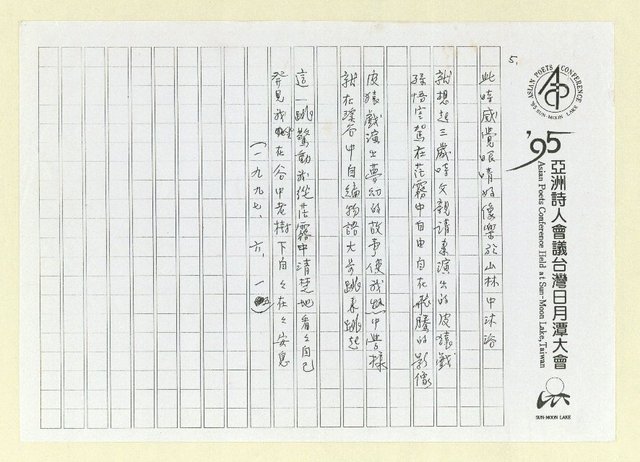 ASIAN POETS CONFERENCE
'95 SUN-MOON LAKE
'95
亞洲詩人會議台灣日月潭大會
Asian Poets Conference Held at Sun-Moon Lake, Taiwan
SUN-MOON LAKE
5.
此時感覺眼睛好像樂於山林中沐浴
就想起三歲時父親請來演出的皮猿戲
孫悟空駕在茫霧中自由自在飛騰的影像
皮猿戲演出夢幻的故事使我 中 樣
就在溪谷中自編物語大 跳來跳起
這一跳驚動我從茫霧中清楚地看々自己
發見我 在谷中老樹下自々在々安息
(一九九七、六、一 )